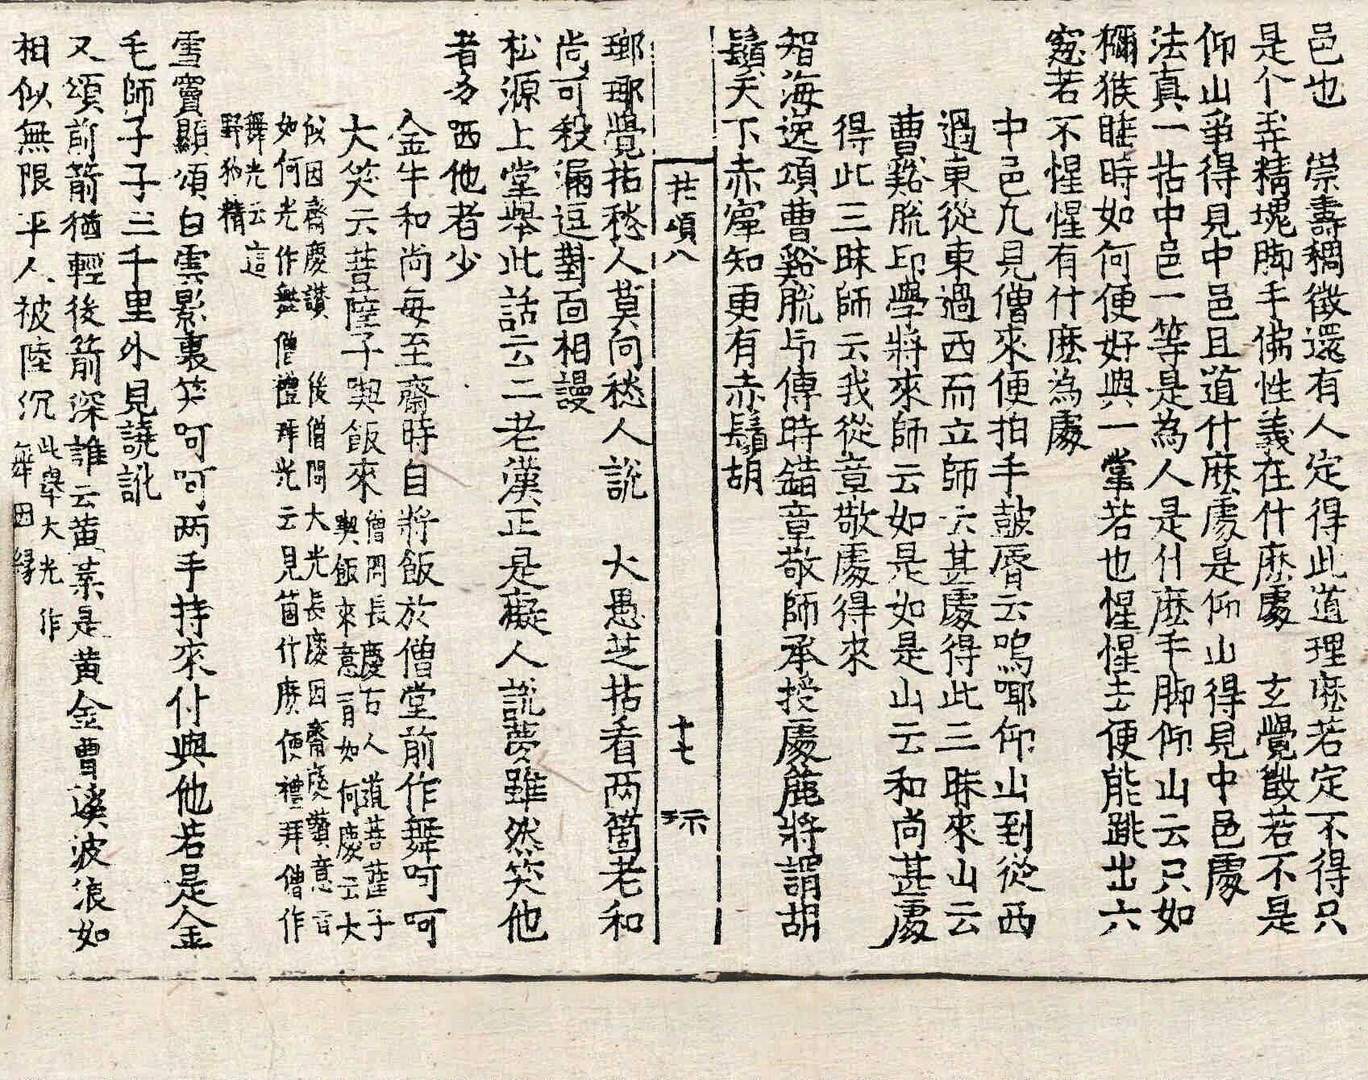 邑也　崇壽稠徵還有人定得此道理麽若定不得只
是个弄精塊脚手佛性義在什麽䖏　玄覺徵若不是
仰山爭得見中邑且道什麽䖏是仰山得見中邑䖏
法真一拈中邑一等是為人是什麽手脚仰山云只如
獼猴睡時如何便好與一掌若也惺惺去便能跳出六
窓若不惺惺有什麽為䖏
中邑凢見僧來便拍手皷脣云嗚㖿仰山到從西
過東從東過西而立師云甚䖏得此三昧來山云
曹谿脫印學將來師云如是如是山云和尚甚䖏
得此三昧師云我從章敬䖏得來
智海逸頌曹谿脫印傳時錯章敬師承授䖏麁將謂胡
鬚天下赤寧知更有赤鬚胡
拈頌八　十七　环
瑯瑘覺拈愁人莫向愁人説　大愚芝拈看两箇老和
尚可殺漏逗對面相謾
松源上堂舉此話云二老漢正是癡人説夢雖然笑他
者多哂他者少
金牛和尚每至齋時自將飯於僧堂前作舞呵呵
大笑云菩薩子喫飯來
僧問長慶古人道菩薩子
喫飯來意旨如何慶云大
似因齋慶讃　後僧問大光長慶因齋慶讃意旨
如何光作舞僧禮拜光云見箇什麽便禮拜僧作
舞光云這
野狐精
雪竇顯頌白雲影裏笑呵呵两手持來付與他若是金
毛師子子三千里外見譊訛
又頌前箭猶輕後箭深誰云黄葉是黄金曹溪波浪如
相似無限平人被陸沉
此舉大光作
舞因縁